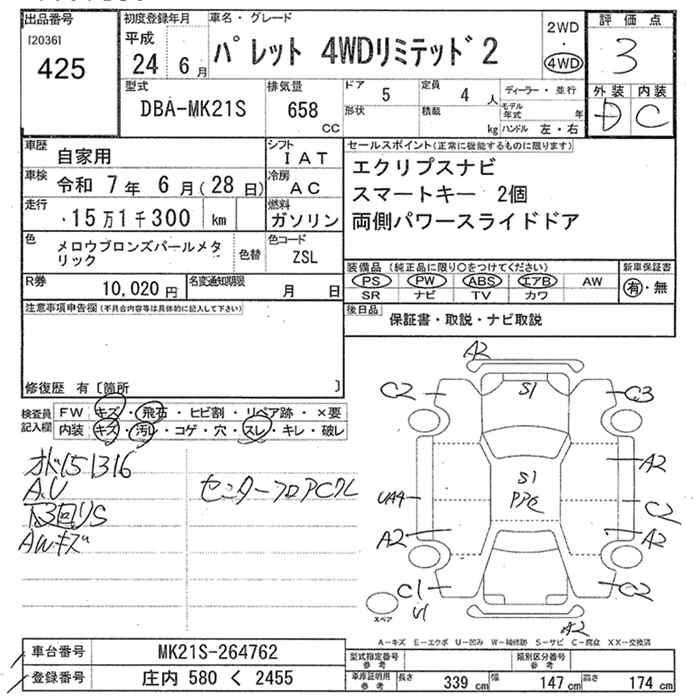 出品番号
[2036]
425
初度登録年月
平成
24 6 月
車名・グレード
パレット 4WDリミテッド2
2WD
・
4WD
評価点
3
外装 内装
D C
型式
DBA-MK21S
排気量
658
CC
ドア
5
定員
4 人
形状
積載
kg
ディーラー・並行
モデル年式 年
ハンドル 左・右
車歴
自家用
シフト
IAT
車検
令和 7 年 6 月(28 日)
冷房
AC
走行
15 万 1 千 300 km
燃料
ガソリン
色
メロウブロンズパールメタリック
色替
色コード
ZSL
R券
10,020 円
名変通知期限
月 日
セールスポイント(正常に機能するものに限ります)
エクリプスナビ
スマートキー 2個
両側パワースライドドア
装備品 (純正品に限り○をつけてください)
PS PW ABS エアB AW
SR ナビ TV カワ
新車保証書
有・無
後日品
保証書・取説・ナビ取説
注意事項申告欄(不具合内容等は具体的に記入して下さい)
修復歴 有 [箇所 ]
検査員記入欄
FW キズ・飛石・ヒビ割・リペア跡・×要
内装 キズ・汚レ・コゲ・穴・スレ・キレ・破レ
オド151316
A.U
下回りS
AWキズ
センターフロアCクレ
A2
C2
S1
C3
A2
S1
UA4
PPC
C2
A2
A2
C1
U1
C2
A2
スペア
A-キズ E-エクボ U-凹み W-補修跡 S-サビ C-腐食 XX-交換済
車台番号
MK21S-264762
登録番号
庄内 580 く 2455
型式指定番号
参考
類別区分番号
参考
車庫証明用
参考
長さ 339 cm
幅 147 cm
高さ 174 cm